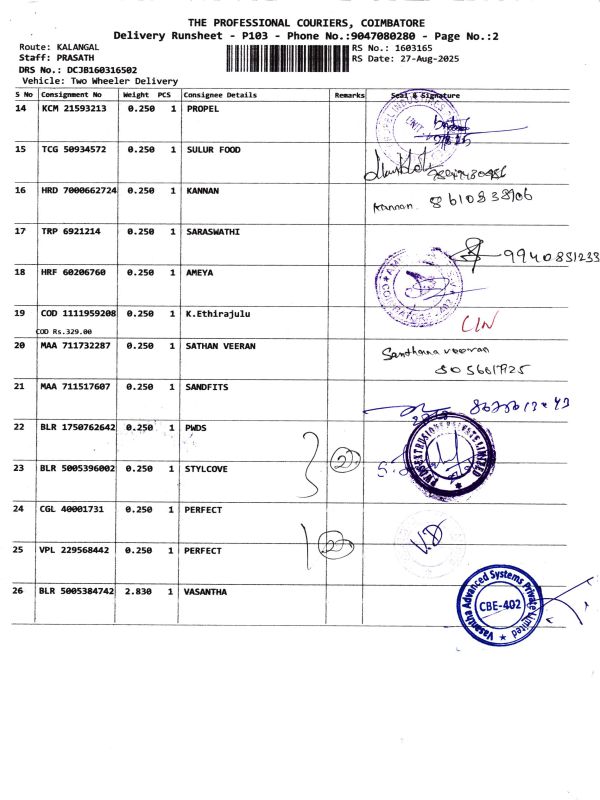 THE PROFESSIONAL COURIERS, COIMBATORE
Delivery Runsheet - P103 - Phone No.:9047080280 - Page No.:2
Route: KALANGAL RS No.: 1603165
Staff: PRASATH RS Date: 27-Aug-2025
DRS No.: DCJB160316502
Vehicle: Two Wheeler Delivery
S No Consignment No Weight PCS Consignee Details Remarks Seal & Signature
14 KCM 21593213 0.250 1 PROPEL
15 TCG 50934572 0.250 1 SULUR FOOD
16 HRD 7000662724 0.250 1 KANNAN Kannan 8610838906
17 TRP 6921214 0.250 1 SARASWATHI 9940831233
18 HRF 60206760 0.250 1 AMEYA
19 COD 1111959208 0.250 1 K.Ethirajulu CIN
COD Rs.329.00
20 MAA 711732287 0.250 1 SATHAN VEERAN Santhana veeran
21 MAA 711517607 0.250 1 SANDFITS
22 BLR 1750762642 0.250 1 PWDS
23 BLR 5005396002 0.250 1 STYLCOVE 2
24 CGL 40001731 0.250 1 PERFECT
25 VPL 229568442 0.250 1 PERFECT 2
26 BLR 5005384742 2.830 1 VASANTHA
Vasantha Advanced Systems Private Limited
CBE-402